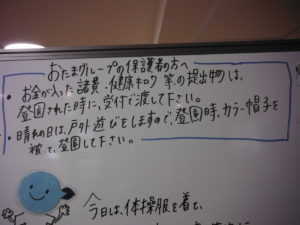 おたまグループの保護者の方へ
・お金が入った諸費、健康キロク等の提出物は、
登園された時に、受付で渡して下さい。
・晴れの日は、戸外遊びをしますので、登園時、カラー帽子を
被って、登園して下さい。
今日は、体操服を着て、